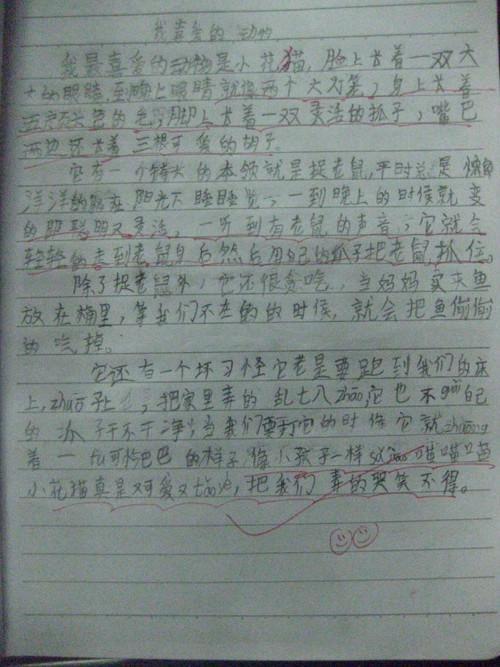 我喜爱的动物
我最喜爱的动物是小花猫，脸上长着一双大
大的眼睛，到晚上眼睛就像两个大灯笼，身上长着
五颜六色的毛，脚上长着一双灵活的抓子，嘴巴
两边还长着三根可爱的胡子。
它有一个特大的本领就是捉老鼠，平时总是懒
洋洋的 在阳光下睡睡觉，一到晚上的时候就变
的即聪明又灵活，一听到有老鼠的声音，它就会
轻轻的走到老鼠身后然后用自己的抓子把老鼠抓住。
除了捉老鼠外，它还很贪吃，当妈妈买来鱼
放在桶里，等我们不在的时候，就会把鱼偷偷
的吃掉。
它还有一个坏习怪它老是要跑到我们的床
上，子上，把家里弄的乱七八zhāo，它也不guǎn自己
的抓子干不干净，当我们要打它的时候它就zhuāng
着一fù可怜巴巴的样子，像小孩子一样 喵喵喵
小花猫真是又可爱又táo ，把我们弄的哭笑不得。